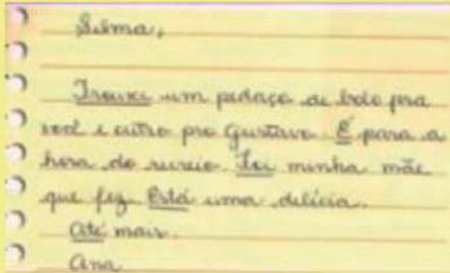 Selma,
Trouxe um pedaço de bolo pra
você e outro pro Gustavo. É para a
hora do recreio. Foi minha mãe
que fez. Está uma delícia.
Até mais.
Ana